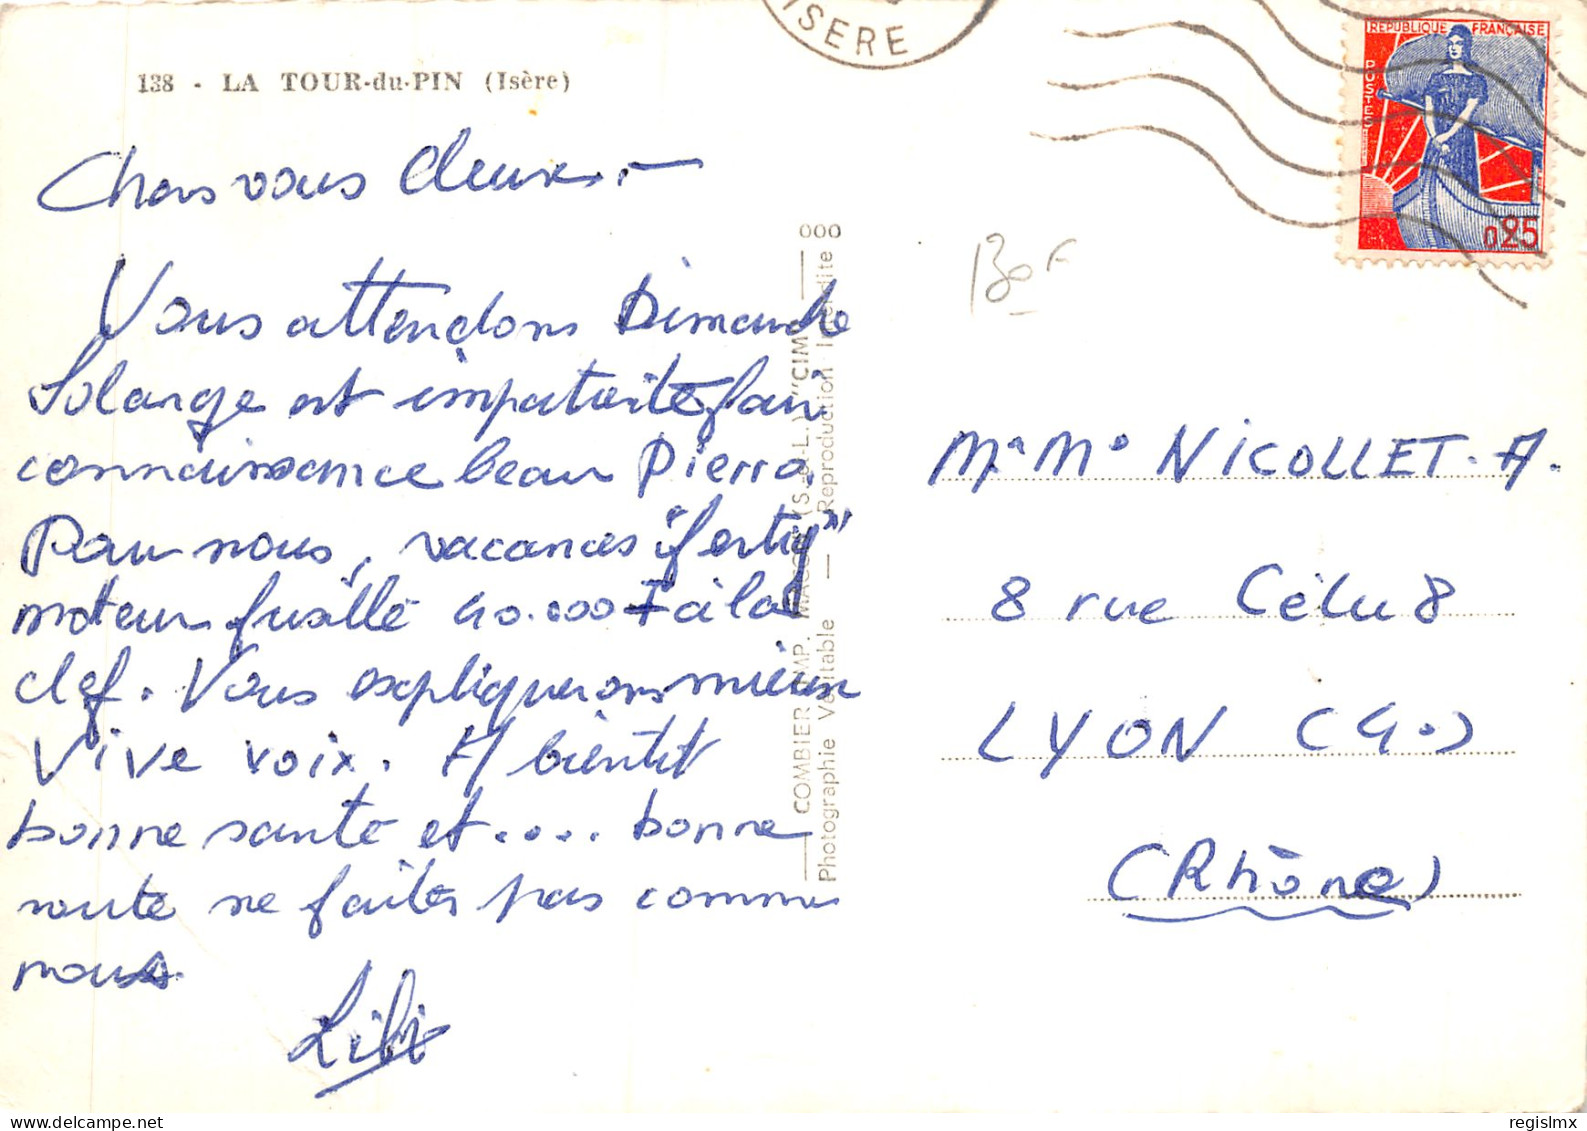 ISERE
138 - LA TOUR-du-PIN (Isère)
REPUBLIQUE FRANÇAISE
POSTES
0,25
130 F
Chers vous deux.-
Vous attendons Dimanche
Solange est impatiente fair
connaissance beau Pierro.
Pour nous, vacances
moteur fusillé 40.000 F à la
clef. Vous expliquerons mieux
Vive voix. A bientôt
bonne santé et.... bonne
route ne faites pas comme
nous.
Lili
000
COMBIER IMP. MACON (S.-&-L.) "CIM"
Photographie Véritable — Reproduction Interdite
Mr Me NICOLLET. A.
8 rue Célu 8
LYON (4.)
(Rhône)
regislmx